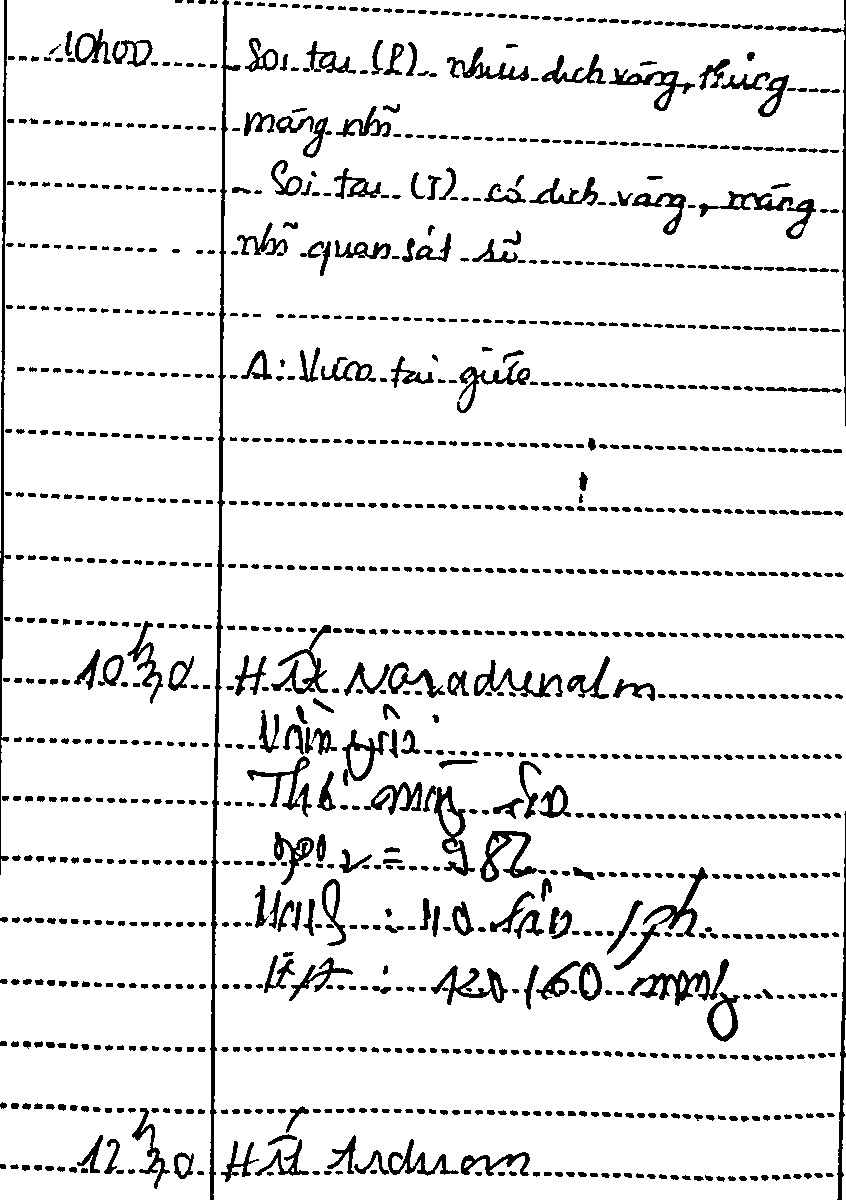 10h00 Soi tai (P) nhiều dịch vàng, thủng
màng nhĩ
- Soi tai (T) có dịch vàng, màng
nhĩ quan sát rõ
A: Viêm tai giữa
10h30 Hết Noradrenalin
Thở máy
SpO2 = 98%
Mạch : 110 lần /ph.
HA : 120/60 mmHg
12h30 Hết